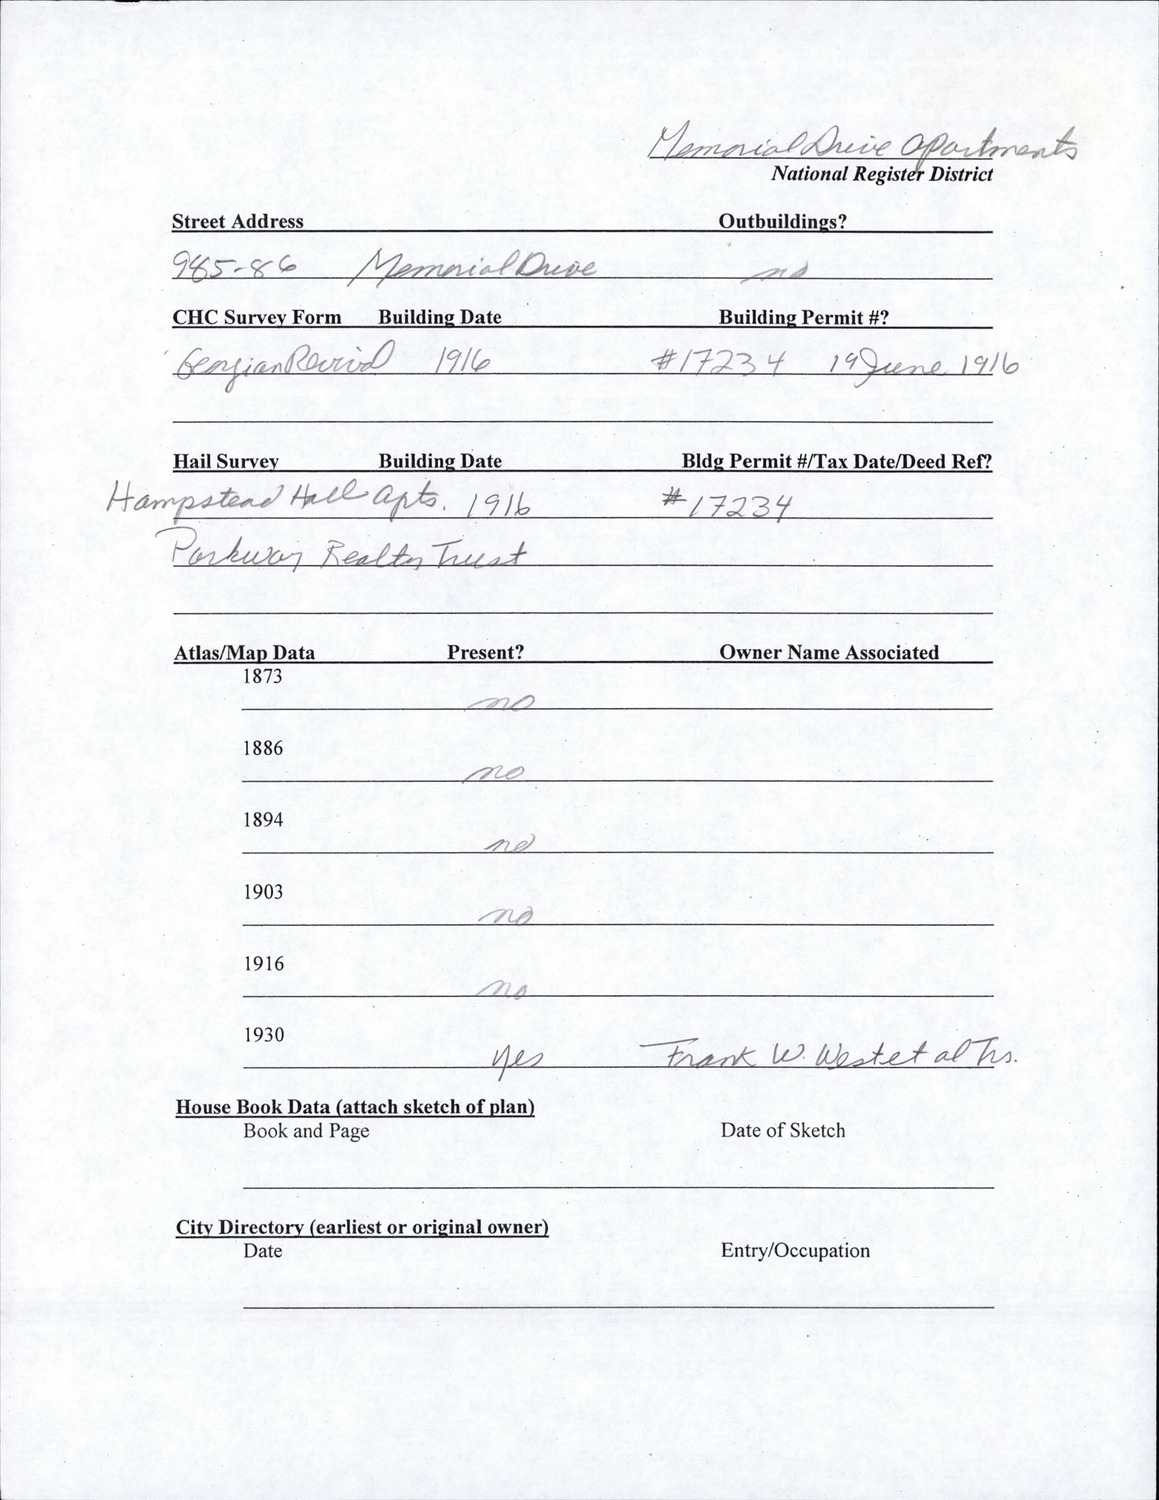 Memorial Drive Apartments
National Register District
Street Address Outbuildings?
985-86 Memorial Drive no
CHC Survey Form Building Date Building Permit #?
Georgian Revival 1916 #17234 19 June 1916
Hail Survey Building Date Bldg Permit #/Tax Date/Deed Ref?
Hampstead Hall Apts. 1916 #17234
Parkway Realty Trust
Atlas/Map Data Present? Owner Name Associated
1873
no
1886
no
1894
no
1903
no
1916
no
1930
yes Frank W. West et al Trs.
House Book Data (attach sketch of plan)
Book and Page Date of Sketch
City Directory (earliest or original owner)
Date Entry/Occupation